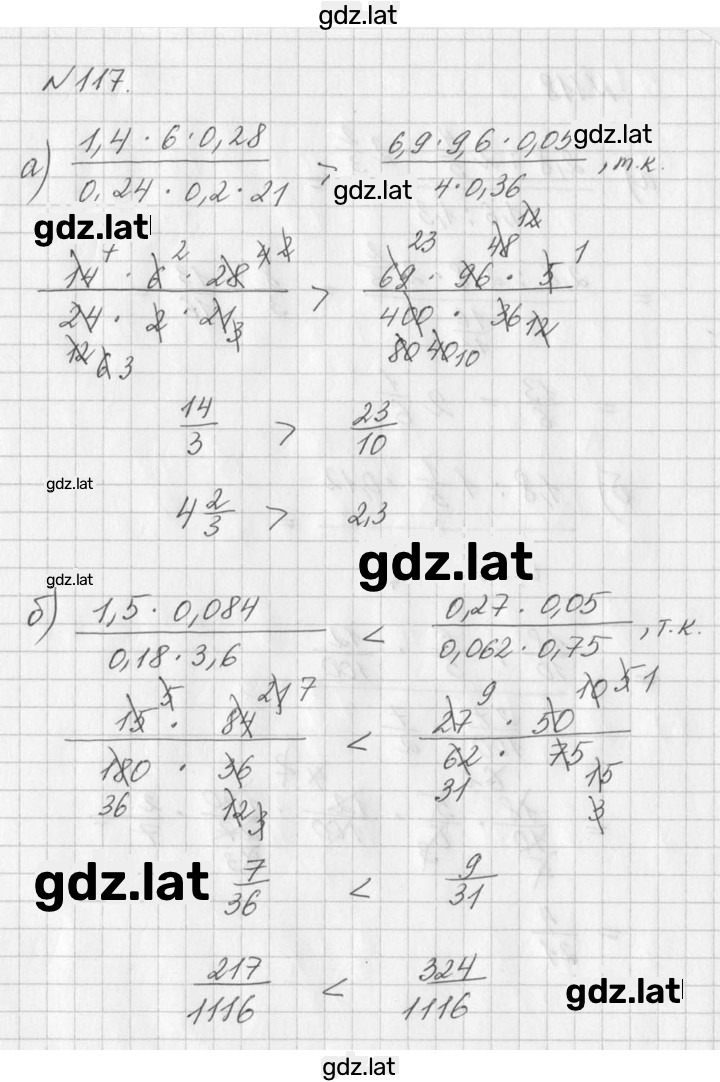 gdz.lat
№117.
а) (1,4 · 6 · 0,28)/(0,24 · 0,2 · 21) > (6,9 · 9,6 · 0,05)/(4 · 0,36), т.к.
gdz.lat
gdz.lat
gdz.lat
(14 · 6 · 28)/(24 · 2 · 21) > (69 · 96 · 5)/(400 · 36)
14/3 > 23/10
gdz.lat
4 2/3 > 2,3
gdz.lat
gdz.lat
б) (1,5 · 0,084)/(0,18 · 3,6) < (0,27 · 0,05)/(0,062 · 0,75), т.к.
(15 · 84)/(180 · 36) < (27 · 50)/(62 · 75)
gdz.lat
7/36 < 9/31
217/1116 < 324/1116
gdz.lat
gdz.lat